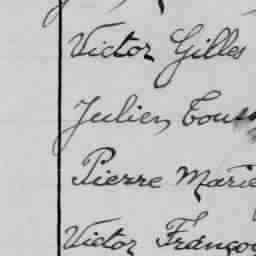 Victor Gilles
Julien Tous
Pierre Marie
Victor Françoi